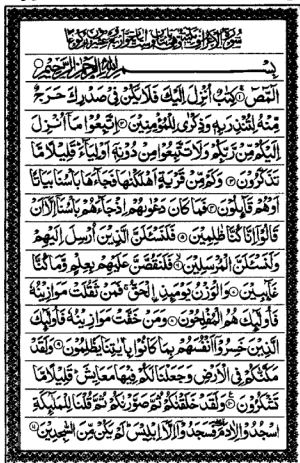 بِسْمِ اللهِ الرَّحْمٰنِ الرَّحِيْمِ
الٓمّٓصٓ ۝ كِتٰبٌ اُنْزِلَ اِلَيْكَ فَلَا يَكُنْ فِىْ صَدْرِكَ حَرَجٌ
مِّنْهُ لِتُنْذِرَ بِهٖ وَذِكْرٰى لِلْمُؤْمِنِيْنَ ۝ اِتَّبِعُوْا مَآ اُنْزِلَ
اِلَيْكُمْ مِّنْ رَّبِّكُمْ وَلَا تَتَّبِعُوْا مِنْ دُوْنِهٖٓ اَوْلِيَآءَ ۗ قَلِيْلًا مَّا
تَذَكَّرُوْنَ ۝ وَكَمْ مِّنْ قَرْيَةٍ اَهْلَكْنٰهَا فَجَآءَهَا بَاْسُنَا بَيَاتًا
اَوْ هُمْ قَآئِلُوْنَ ۝ فَمَا كَانَ دَعْوٰىهُمْ اِذْ جَآءَهُمْ بَاْسُنَآ اِلَّآ اَنْ
قَالُوْٓا اِنَّا كُنَّا ظٰلِمِيْنَ ۝ فَلَنَسْـَٔلَنَّ الَّذِيْنَ اُرْسِلَ اِلَيْهِمْ
وَلَنَسْـَٔلَنَّ الْمُرْسَلِيْنَ ۝ فَلَنَقُصَّنَّ عَلَيْهِمْ بِعِلْمٍ وَّمَا كُنَّا
غَآئِبِيْنَ ۝ وَالْوَزْنُ يَوْمَئِذِ ِۨالْحَقُّ ۚ فَمَنْ ثَقُلَتْ مَوَازِيْنُهٗ
فَاُولٰٓئِكَ هُمُ الْمُفْلِحُوْنَ ۝ وَمَنْ خَفَّتْ مَوَازِيْنُهٗ فَاُولٰٓئِكَ
الَّذِيْنَ خَسِرُوْٓا اَنْفُسَهُمْ بِمَا كَانُوْا بِاٰيٰتِنَا يَظْلِمُوْنَ ۝ وَلَقَدْ
مَكَّنّٰكُمْ فِى الْاَرْضِ وَجَعَلْنَا لَكُمْ فِيْهَا مَعَايِشَ ۗ قَلِيْلًا مَّا
تَشْكُرُوْنَ ۝ وَلَقَدْ خَلَقْنٰكُمْ ثُمَّ صَوَّرْنٰكُمْ ثُمَّ قُلْنَا لِلْمَلٰٓئِكَةِ
اسْجُدُوْا لِاٰدَمَ ۖ فَسَجَدُوْٓا اِلَّآ اِبْلِيْسَ ۗ لَمْ يَكُنْ مِّنَ السّٰجِدِيْنَ ۝